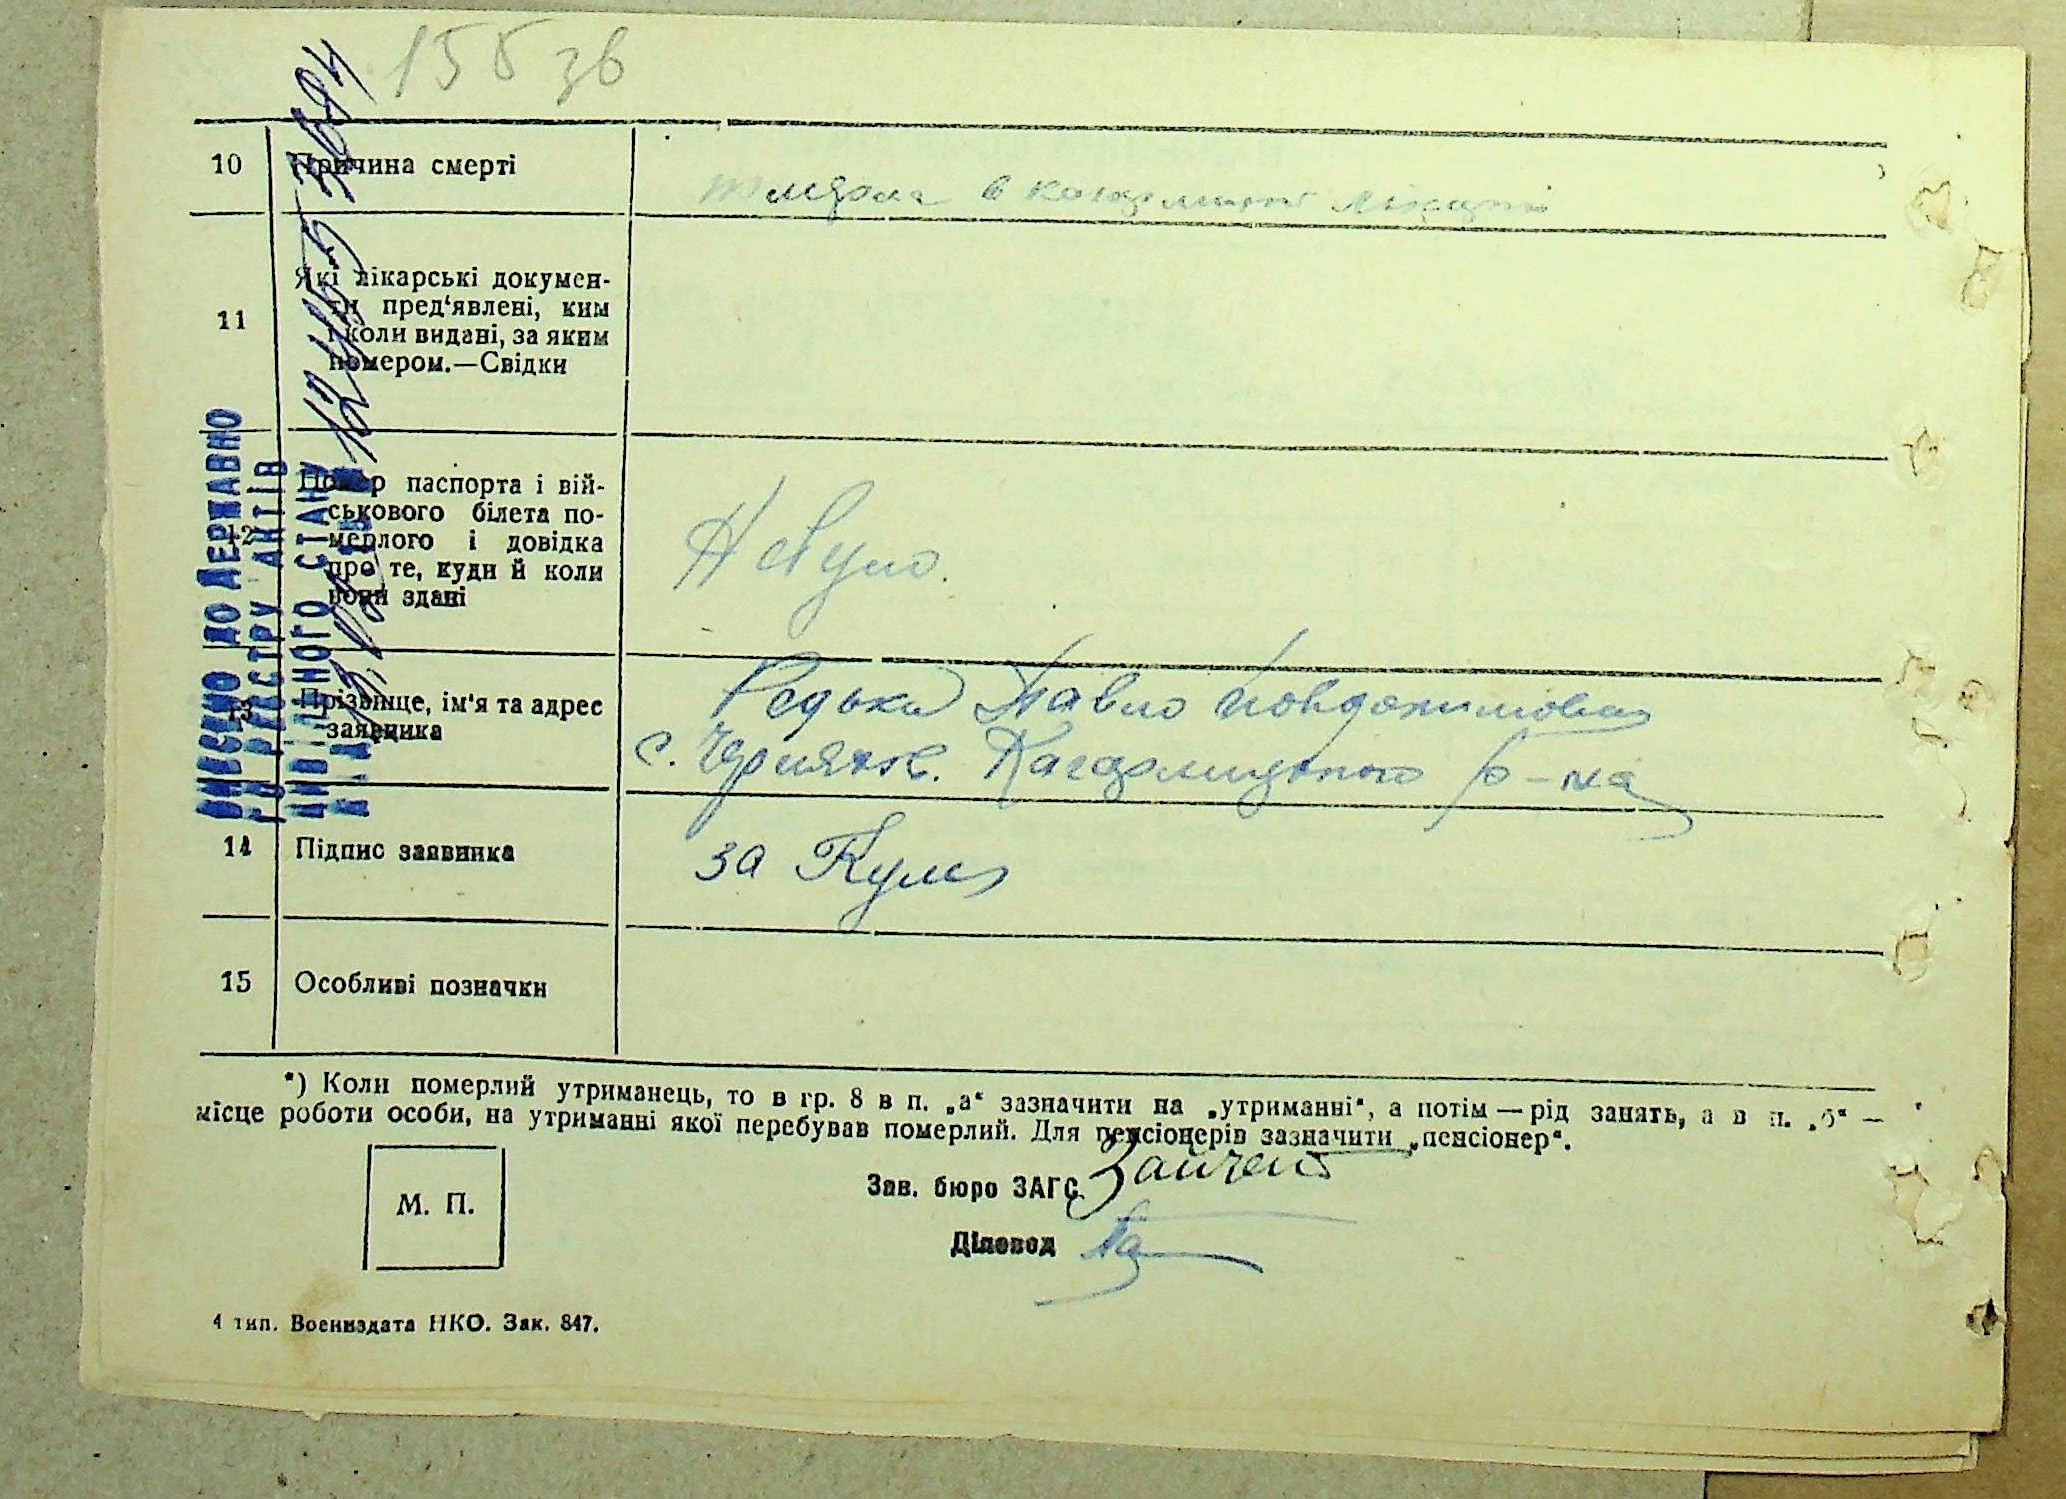 155 зв
10 Причина смерті
в лікарні
11 Які лікарські докумен-
ти пред‘явлені, ким
і коли видані, за яким
номером.—Свідки
12 Номер паспорта і вій-
ськового білета по-
мерлого і довідка
про те, куди й коли
вони здані
Не було.
13 Прізвище, ім‘я та адрес
заявника
Редька Павло
с. Черняхів. Кагарлицького р-на
14 Підпис заявника
за
15 Особливі позначки
*) Коли померлий утриманець, то в гр. 8 в п. „а“ зазначити на „утриманні“, а потім — рід занять, а в п. „б“ —
місце роботи особи, на утриманні якої перебував померлий. Для пенсіонерів зазначити „пенсіонер“.
М. П.
Зав. бюро ЗАГС
Діловод
4 тип. Воениздата НКО. Зак. 847.
ВНЕСЕНО ДО ДЕРЖАВНО
ГО РЕЄСТРУ АКТІВ
ЦИВІЛЬНОГО СТАНУ